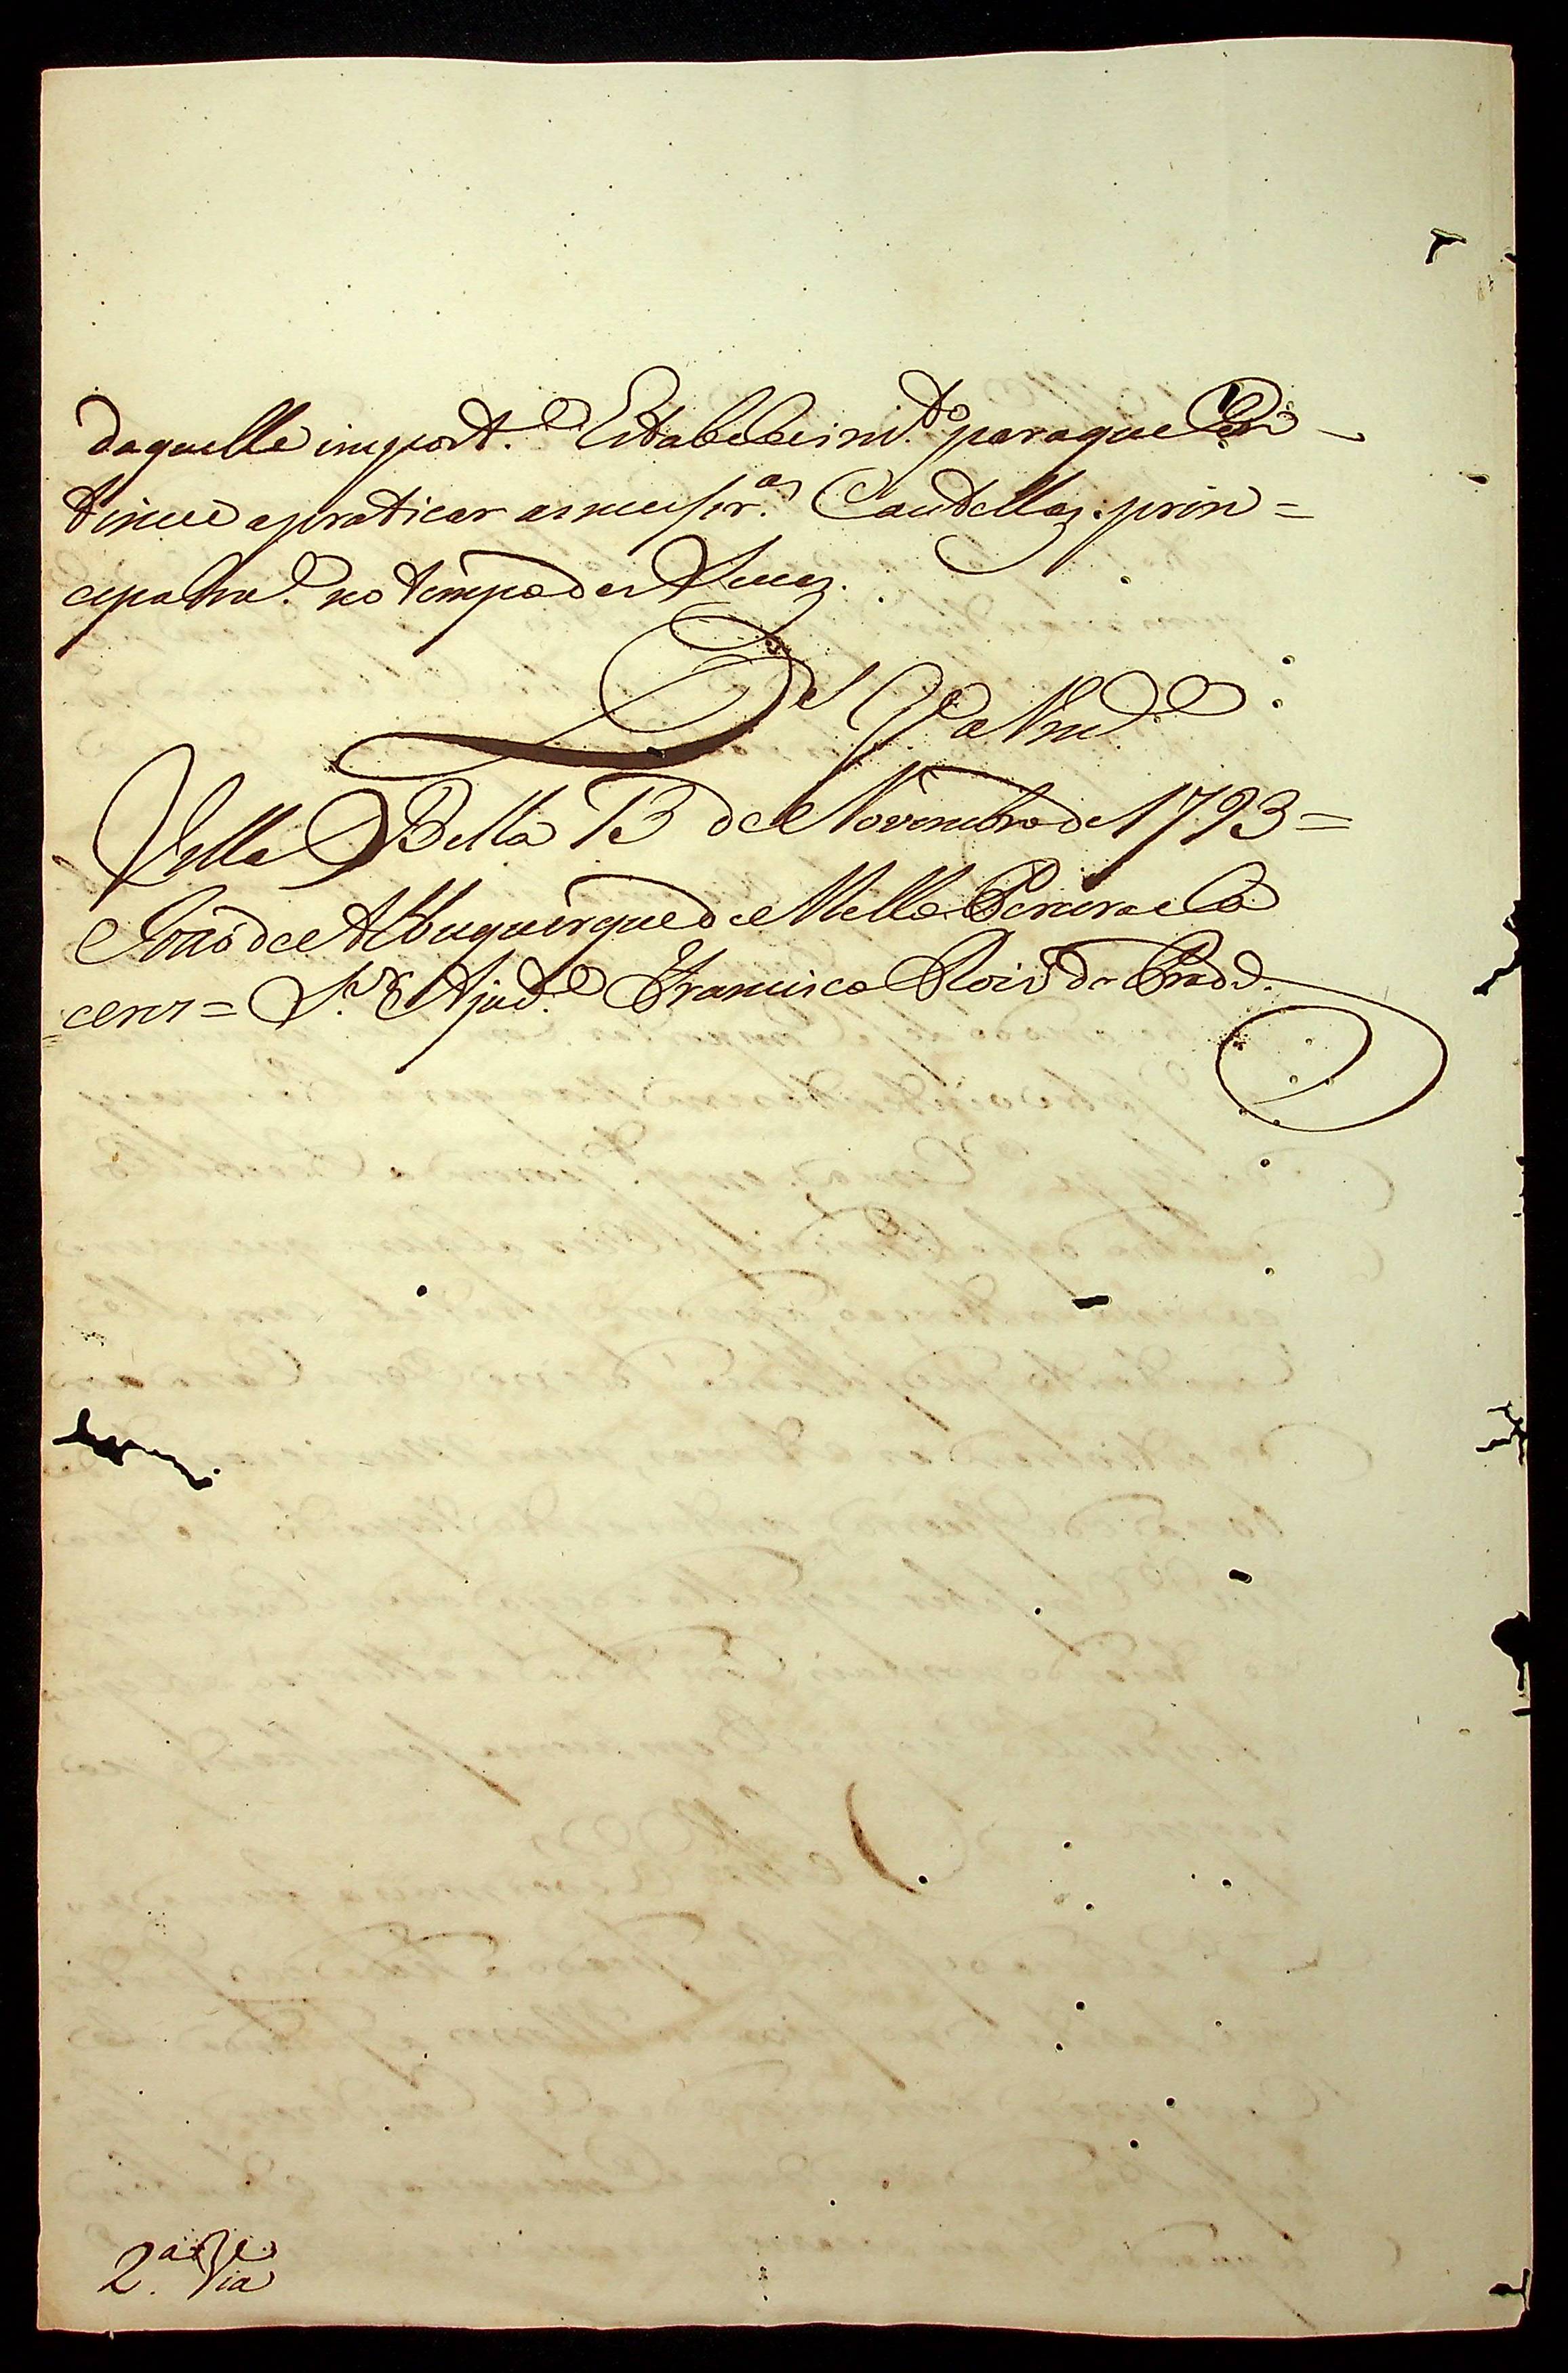 daquelle import.e Estabelecim.to para que Con-
tinue a praticar as necessr.as Cautellas: prin=
cepalm.e no tempo das Seccas.
D.s G.e a Vm.ce
Villa Bella 13 de Novembro de 1793=
João de Albuquerque de Mello Pereira e Ca
ceres = S.r Ajud.e Francisco Roiz do Prado.
2.a Via